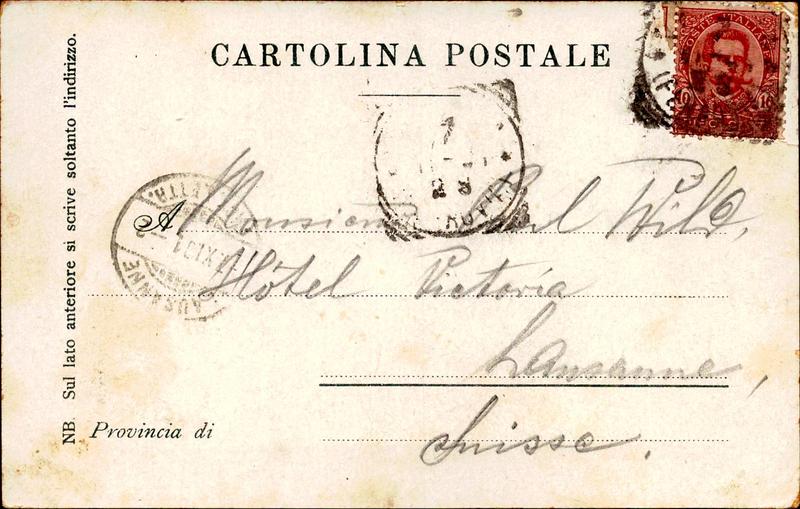 CARTOLINA POSTALE
POSTE ITALIANE
10 10
A Monsieur Carl Wild,
Hôtel Victoria
Lausanne,
Suisse.
Provincia di
NB. Sul lato anteriore si scrive soltanto l'indirizzo.
LAUSANNE
XI.01